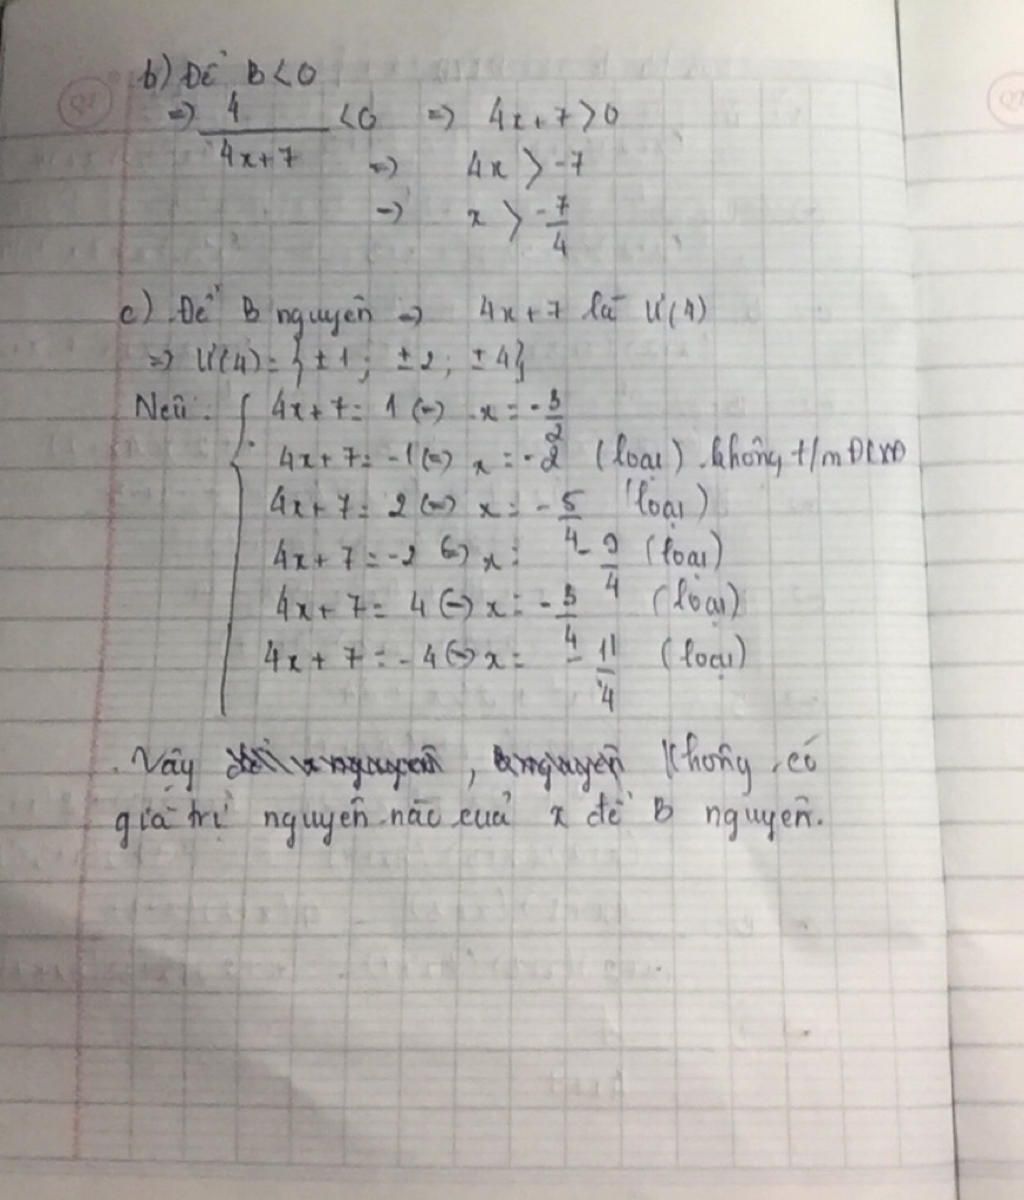 b) Để B < 0
=> 4/(4x+7) < 0 => 4x+7 > 0
=> 4x > -7
=> x > -7/4
c) Để B nguyên => 4x+7 là Ư(4)
=> Ư(4) = {±1; ±2; ±4}
Nếu 4x+7 = 1 <=> x = -3/2
4x+7 = -1 <=> x = -2 (loại) không t/m ĐKXĐ
4x+7 = 2 <=> x = -5/4 (loại)
4x+7 = -2 <=> x = -9/4 (loại)
4x+7 = 4 <=> x = -3/4 (loại)
4x+7 = -4 <=> x = -11/4 (loại)
Vậy , Không có
giá trị nguyên nào của x để B nguyên.